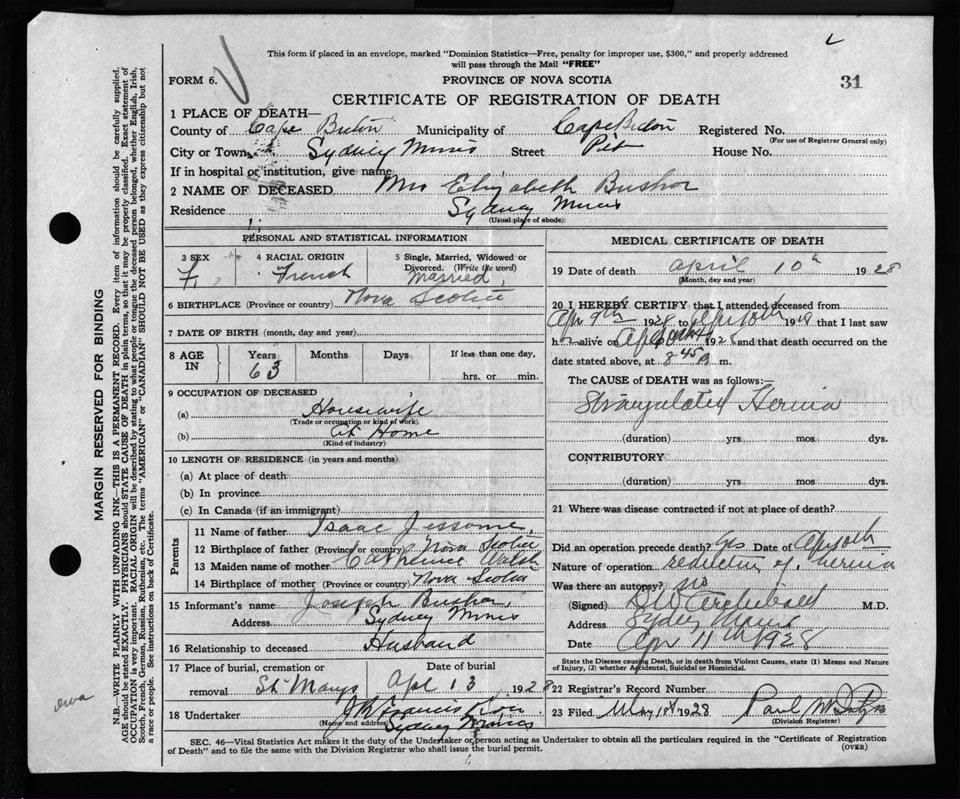 This form if placed in an envelope, marked "Dominion Statistics—Free, penalty for improper use, $300," and properly addressed
will pass through the Mail "FREE"
FORM 6.
PROVINCE OF NOVA SCOTIA
31
CERTIFICATE OF REGISTRATION OF DEATH
1 PLACE OF DEATH—
County of Cape Breton Municipality of Cape Breton Registered No.
(For use of Registrar General only)
City or Town Sydney Mines Street Pitt House No.
If in hospital or institution, give name
2 NAME OF DECEASED Mrs Elizabeth Bushor
Residence Sydney Mines
(Usual place of abode)
PERSONAL AND STATISTICAL INFORMATION
3 SEX F.
4 RACIAL ORIGIN French
5 Single, Married, Widowed or
Divorced. (Write the word)
Married
6 BIRTHPLACE (Province or country) Nova Scotia
7 DATE OF BIRTH (month, day and year)
8 AGE IN Years Months Days If less than one day,
63 hrs. or min.
9 OCCUPATION OF DECEASED
(a) Housewife
(Trade or occupation or kind of work)
(b) At Home
(Kind of industry)
10 LENGTH OF RESIDENCE (in years and months)
(a) At place of death
(b) In province
(c) In Canada (if an immigrant)
Parents
11 Name of father Isaac Jessome
12 Birthplace of father (Province or country) Nova Scotia
13 Maiden name of mother Catherine Walsh
14 Birthplace of mother (Province or country) Nova Scotia
15 Informant's name Joseph Bushor
Address Sydney Mines
16 Relationship to deceased Husband
17 Place of burial, cremation or Date of burial
removal St Marys Apl 13 1928
18 Undertaker J W Francis & Son
(Name and address) Sydney Mines
MEDICAL CERTIFICATE OF DEATH
19 Date of death April 10th 1928
(Month, day and year)
20 I HEREBY CERTIFY that I attended deceased from
Apr 9th 1928 to Apr 10th 1928 that I last saw
h alive on Apr 10th 1928 and that death occurred on the
date stated above, at 8 45 m.
The CAUSE of DEATH was as follows:—
Strangulated Hernia
(duration) yrs mos dys.
CONTRIBUTORY
(duration) yrs mos dys.
21 Where was disease contracted if not at place of death?
Did an operation precede death? Yes Date of Apr 10th
Nature of operation reduction of hernia
Was there an autopsy? no
(Signed) Archibald M.D.
Address Sydney Mines
Date Apr 11th 1928
State the Disease causing Death, or in death from Violent Causes, state (1) Means and Nature
of Injury, (2) whether Accidental, Suicidal or Homicidal.
22 Registrar's Record Number
23 Filed May 1st 1928 Paul
(Division Registrar)
SEC. 46—Vital Statistics Act makes it the duty of the Undertaker or person acting as Undertaker to obtain all the particulars required in the "Certificate of Registration
of Death" and to file the same with the Division Registrar who shall issue the burial permit.
(OVER)
MARGIN RESERVED FOR BINDING
N.B.—WRITE PLAINLY WITH UNFADING INK—THIS IS A PERMANENT RECORD. Every item of information should be carefully supplied.
AGE should be stated EXACTLY. PHYSICIANS should STATE CAUSE OF DEATH in plain terms, so that it may be properly classified. Exact statement of
OCCUPATION is very important. RACIAL ORIGIN will be described by stating to what people or tongue the deceased person belonged, whether English, Irish,
Scotch, French, German, Russian, Ruthenian, etc. The terms "AMERICAN" or "CANADIAN" SHOULD NOT BE USED as they express citizenship but not
a race or people. See instructions on back of Certificate.